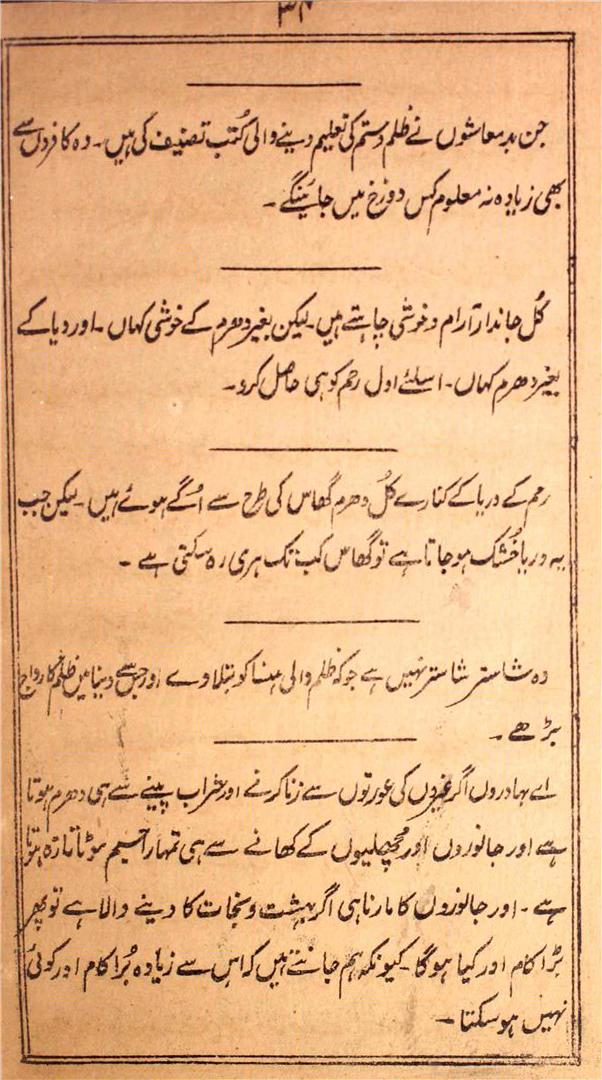 ۳۴
جن بدمعاشوں نے ظلم و ستم کی تعلیم دینے والی کُتب تصنیف کی ہیں۔ وہ کافروں سے
بھی زیادہ نہ معلوم کس دوزخ میں جائینگے۔
کُل جاندار آرام و خوشی چاہتے ہیں۔ لیکن بغیر دھرم کے خوشی کہاں۔ اور دیا کے
بغیر دھرم کہاں۔ اسلئے اول رحم کو ہی حاصل کرو۔
رحم کے دریا کے کنارے کُل دھرم گھاس کی طرح سے اُگے ہوئے ہیں۔ لیکن جب
یہ دریا خُشک ہو جاتا ہے تو گھاس کب تک ہری رہ سکتی ہے۔
وہ شاستر شاستر نہیں ہے جو کہ ظلم والی ہنسا کو بتلاوے اور جس سے دنیا میں ظلم کا رواج
بڑھے۔
اے بہادروں اگر غیروں کی عورتوں سے زنا کرنے اور شراب پینے سے ہی دھرم ہوتا
ہے اور جانوروں اور مچھلیوں کے کھانے سے ہی تمہارا جسیم موٹا تازہ ہوتا
ہے۔ اور جانوروں کا مارنا ہی اگر بہشت و نجات کا دینے والا ہے تو پھر
بُڑا کام اور کیا ہوگا۔ کیونکہ ہم جانتے ہیں کہ اس سے زیادہ بُرا کام اور کوئی
نہیں ہو سکتا۔